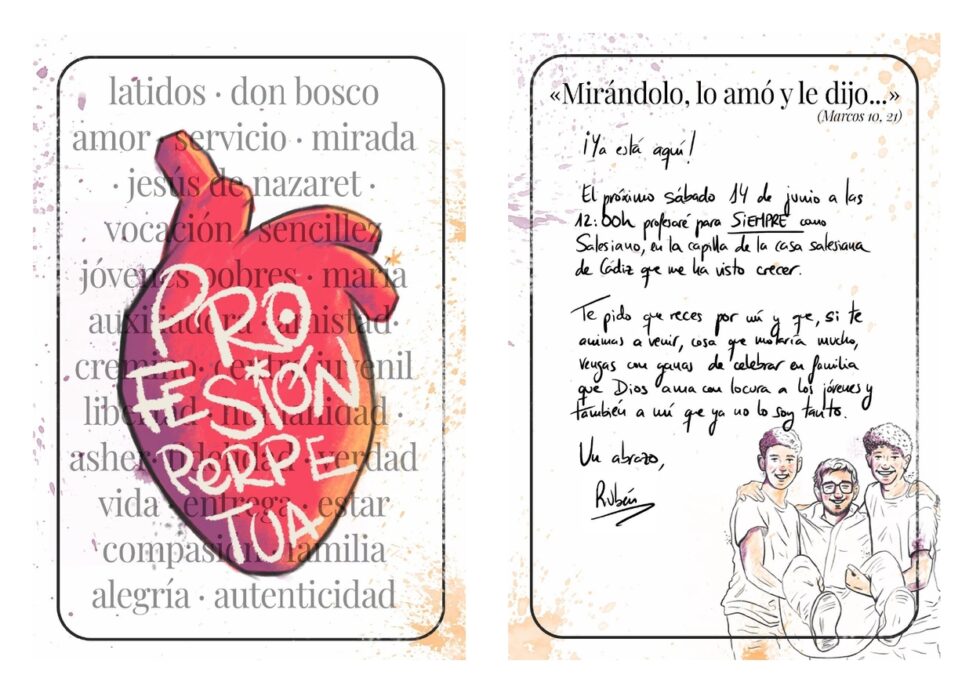 latidos · don bosco
amor · servicio · mirada
· jesús de nazaret ·
vocación · sencillez
jóvenes pobres · maría
auxiliadora · amistad·
cremino · centro juvenil
libertad · humanidad ·
asher · fidelidad · verdad
vida · entrega · estar
compasión · familia
alegría · autenticidad
PRO
FESIÓN
PERPE
TUA
«Mirándolo, lo amó y le dijo...»
(Marcos 10, 21)
¡Ya está aquí!
El próximo sábado 14 de junio a las
12:00h profesaré para SIEMPRE como
Salesiano, en la capilla de la casa salesiana
de Cádiz que me ha visto crecer.
Te pido que reces por mí y que, si te
animas a venir, cosa que molaría mucho,
vengas con ganas de celebrar en familia
que Dios ama con locura a los jóvenes y
también a mí que ya no lo soy tanto.
Un abrazo,
Rubén